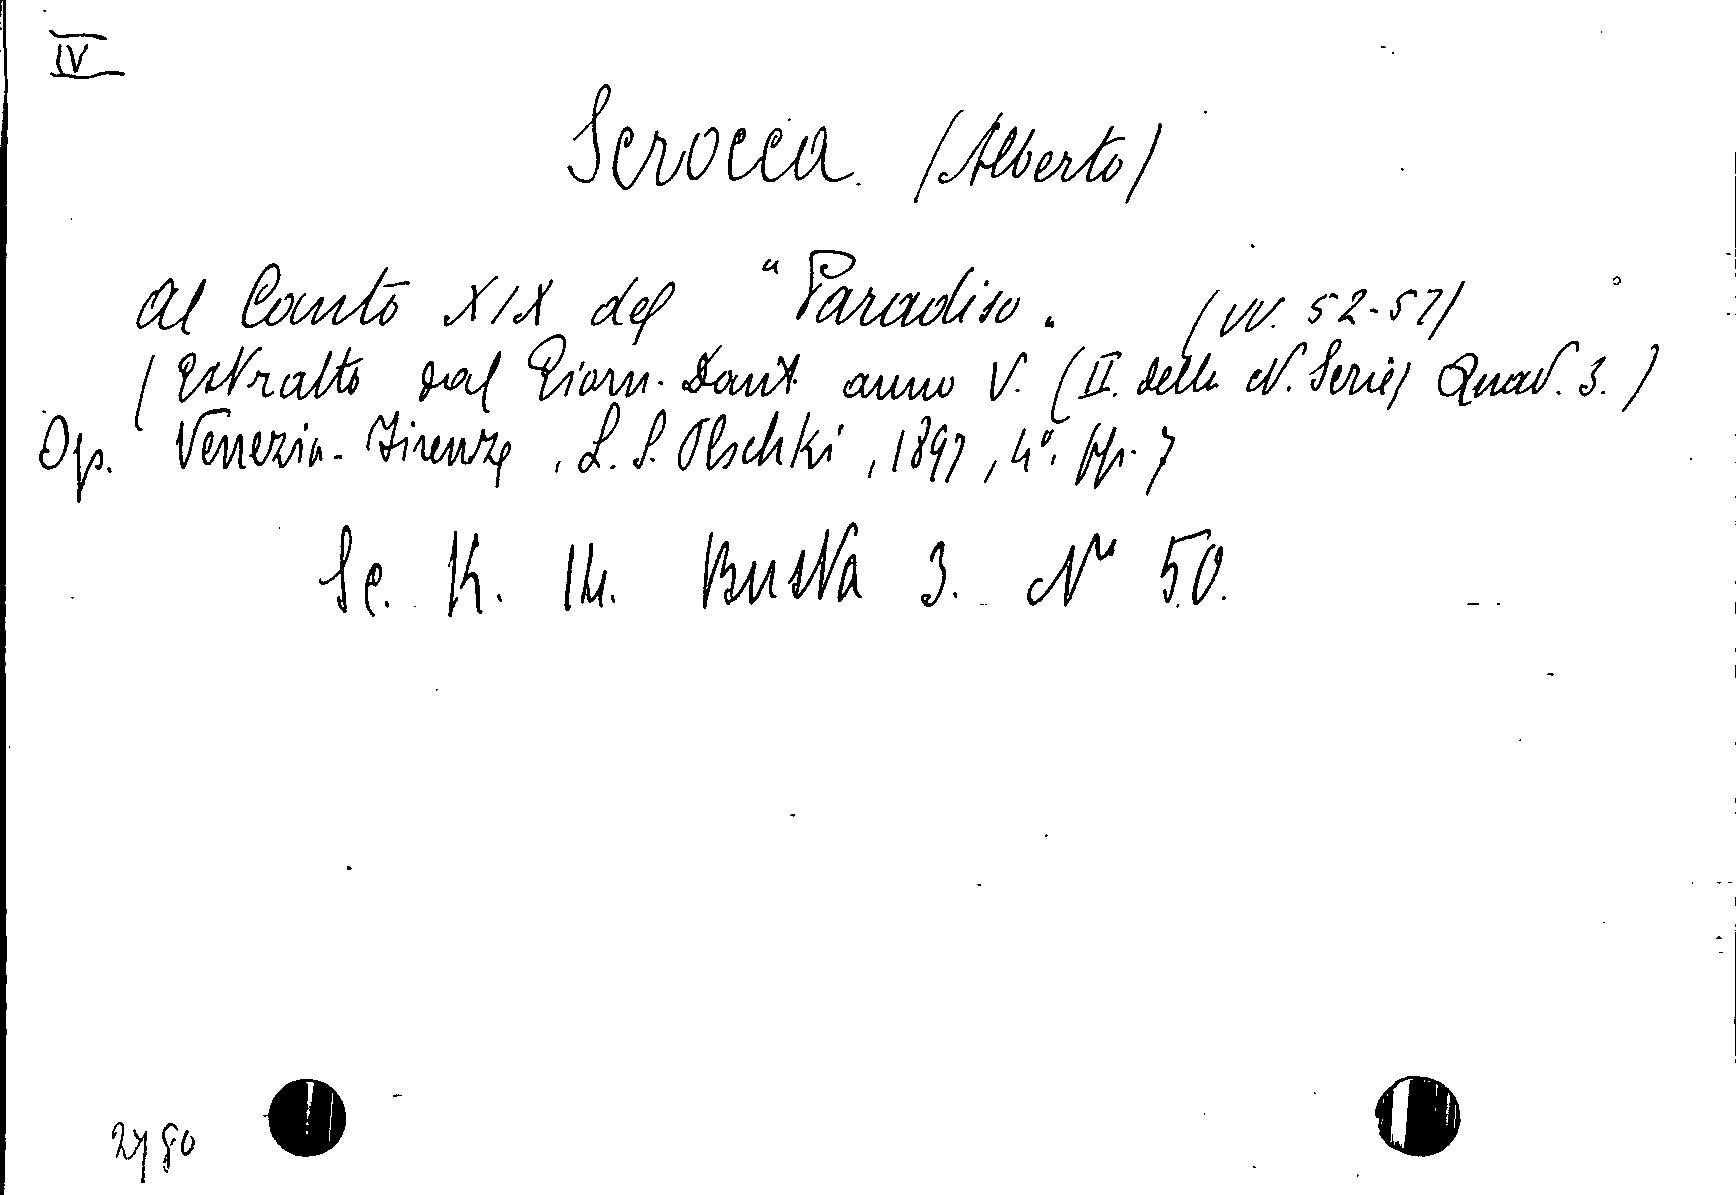 IV
Scrocca (Alberto)
Al Canto XIX del "Paradiso" (vv. 52-57)
(Estratto dal Giorn. Dant. anno V. (II. della N. Serie) Quad. 3.)
Op. Venezia-Firenze, L. S. Olschki, 1897, 4°. pp. 7
Sc. K. 14. Busta 3. N° 50.